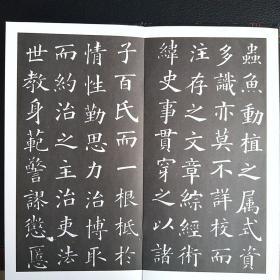 蟲魚動植之属式資
多識亦莫不詳校而
注存之文章綜經
緯史事貫穿之以諸
子百氏而一根柢於
情性勤思力治博取
而約治之主治吏法
世教身範警謬懲慝